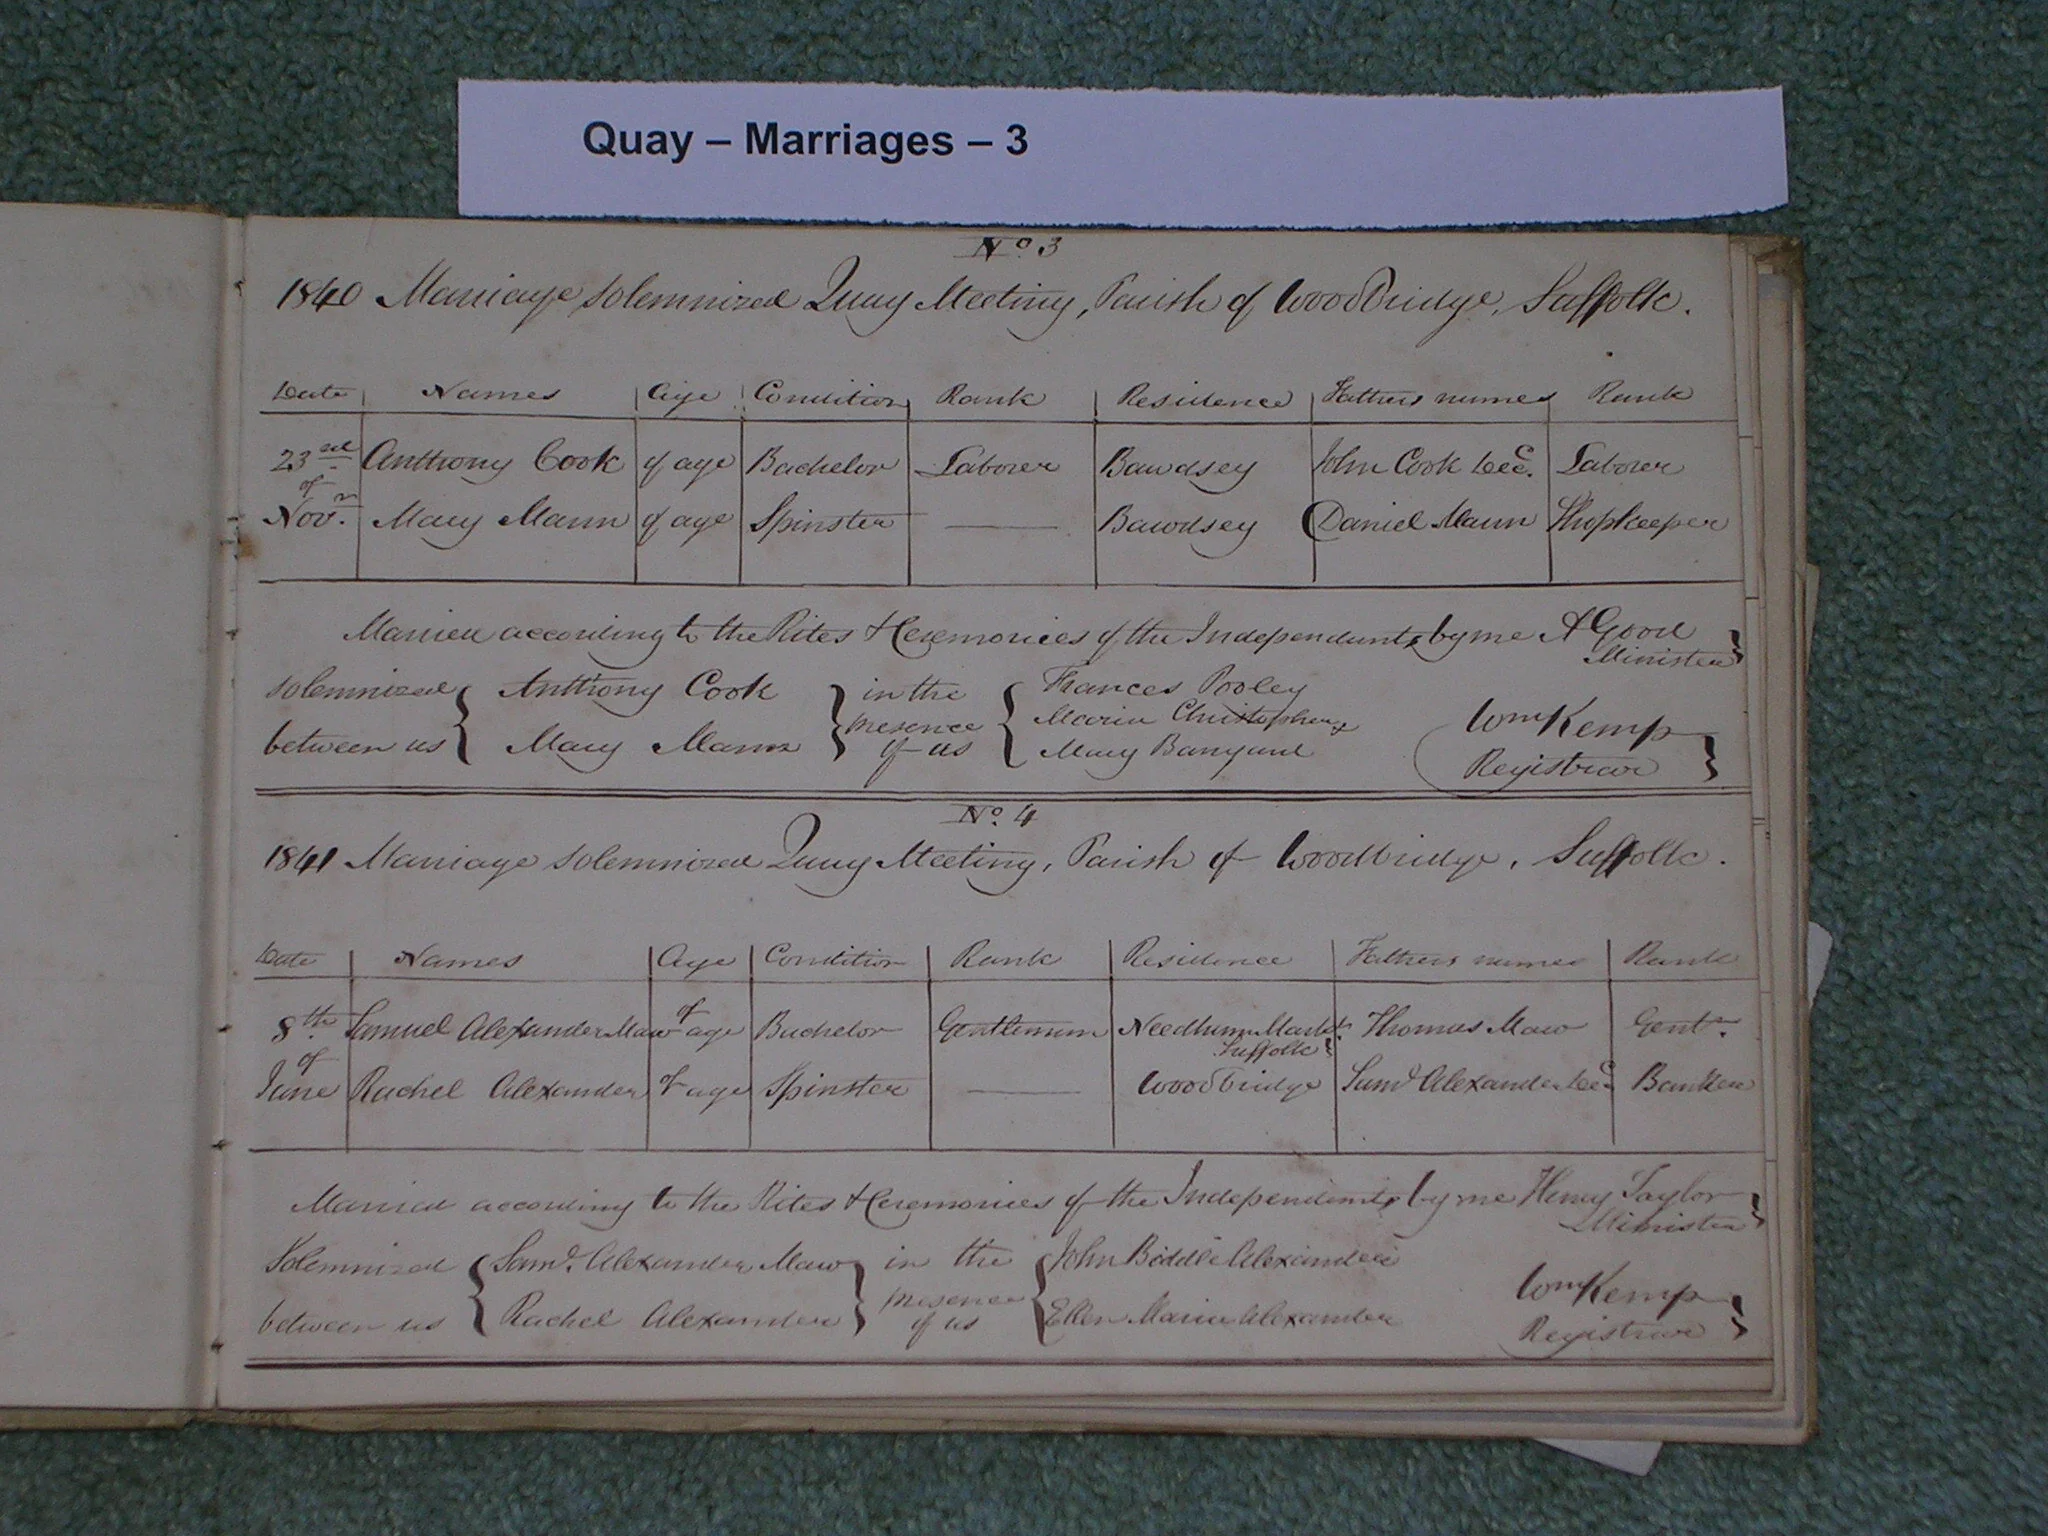 Quay – Marriages – 3
No. 3
1840 Marriage solemnized Quay Meeting, Parish of Woodbridge, Suffolk.
Date Names Age Condition Rank Residence Fathers names Rank
23rd Anthony Cook of age Bachelor Laborer Bawdsey John Cook Decd. Laborer
of
Novr. Mary Mann of age Spinster Bawdsey Daniel Mann Shopkeeper
Married according to the Rites & Ceremonies of the Independents, by me A Good
Minister
solemnized Anthony Cook in the Frances Pooley
presence Maria Christopherx Wm Kemp
between us Mary Mann of us Mary Banyard Registrar
No. 4
1841 Marriage solemnized Quay Meeting, Parish of Woodbridge, Suffolk.
Date Names Age Condition Rank Residence Fathers names Rank
8th. Samuel Alexander Maw of age Bachelor Gentleman Needham Markt. Thomas Maw Gent.
of Suffolk
June Rachel Alexander of age Spinster Woodbridge Saml. Alexander Decd Banker
Married according to the Rites & Ceremonies of the Independents, by me Henry Taylor
Minister
Solemnized Saml. Alexander Maw in the John Biddle Alexander
presence Wm Kemp
between us Rachel Alexander of us Ellen Maria Alexander Registrar